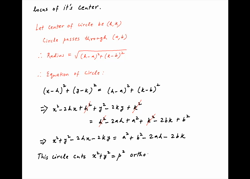 locus of it's center.
Let center of circle be (h,k)
Circle passes through (a,b)
∴ Radius = √(h-a)²+(k-b)²
∴ Equation of Circle
(x-h)²+(y-k)² = (h-a)²+(k-b)²
⇒ x²-2hx+h²+y²-2ky+k²
= h²-2ah+a²+k²-2bk+b²
⇒ x²+y²-2hx-2ky = a²+b²-2ah-2bk
This circle cuts x²+y²=p² ortho